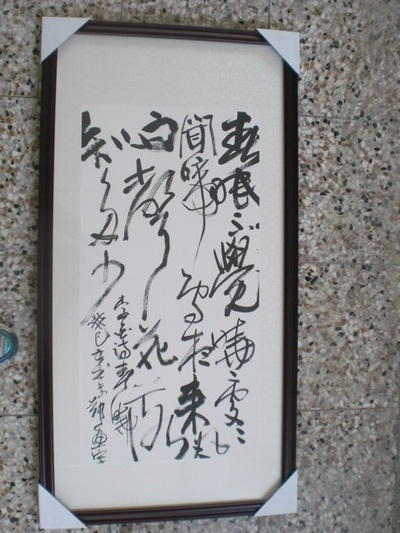 春眠不覺曉處々
聞啼鳥夜來風
雨聲花落
知多少
詩春曉
癸巳